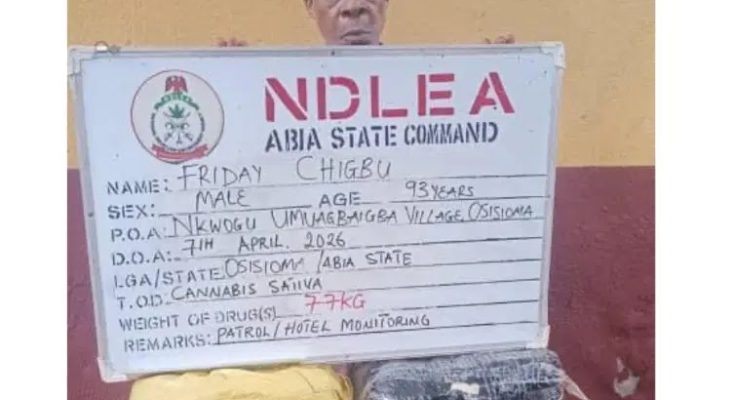 NDLEA
ABIA STATE COMMAND
NAME: FRIDAY CHIGBU
SEX: MALE AGE 93 YEARS
P.O.A: NKWOGU UMUAGBAIGBA VILLAGE, OSISIOMA
D.O.A: 7TH APRIL. 2026
LGA/STATE OSISIOMA / ABIA STATE
T.O.D CANNABIS SATIVA
WEIGHT OF DRUG(S) 77KG
REMARKS: PATROL / HOTEL MONITORING